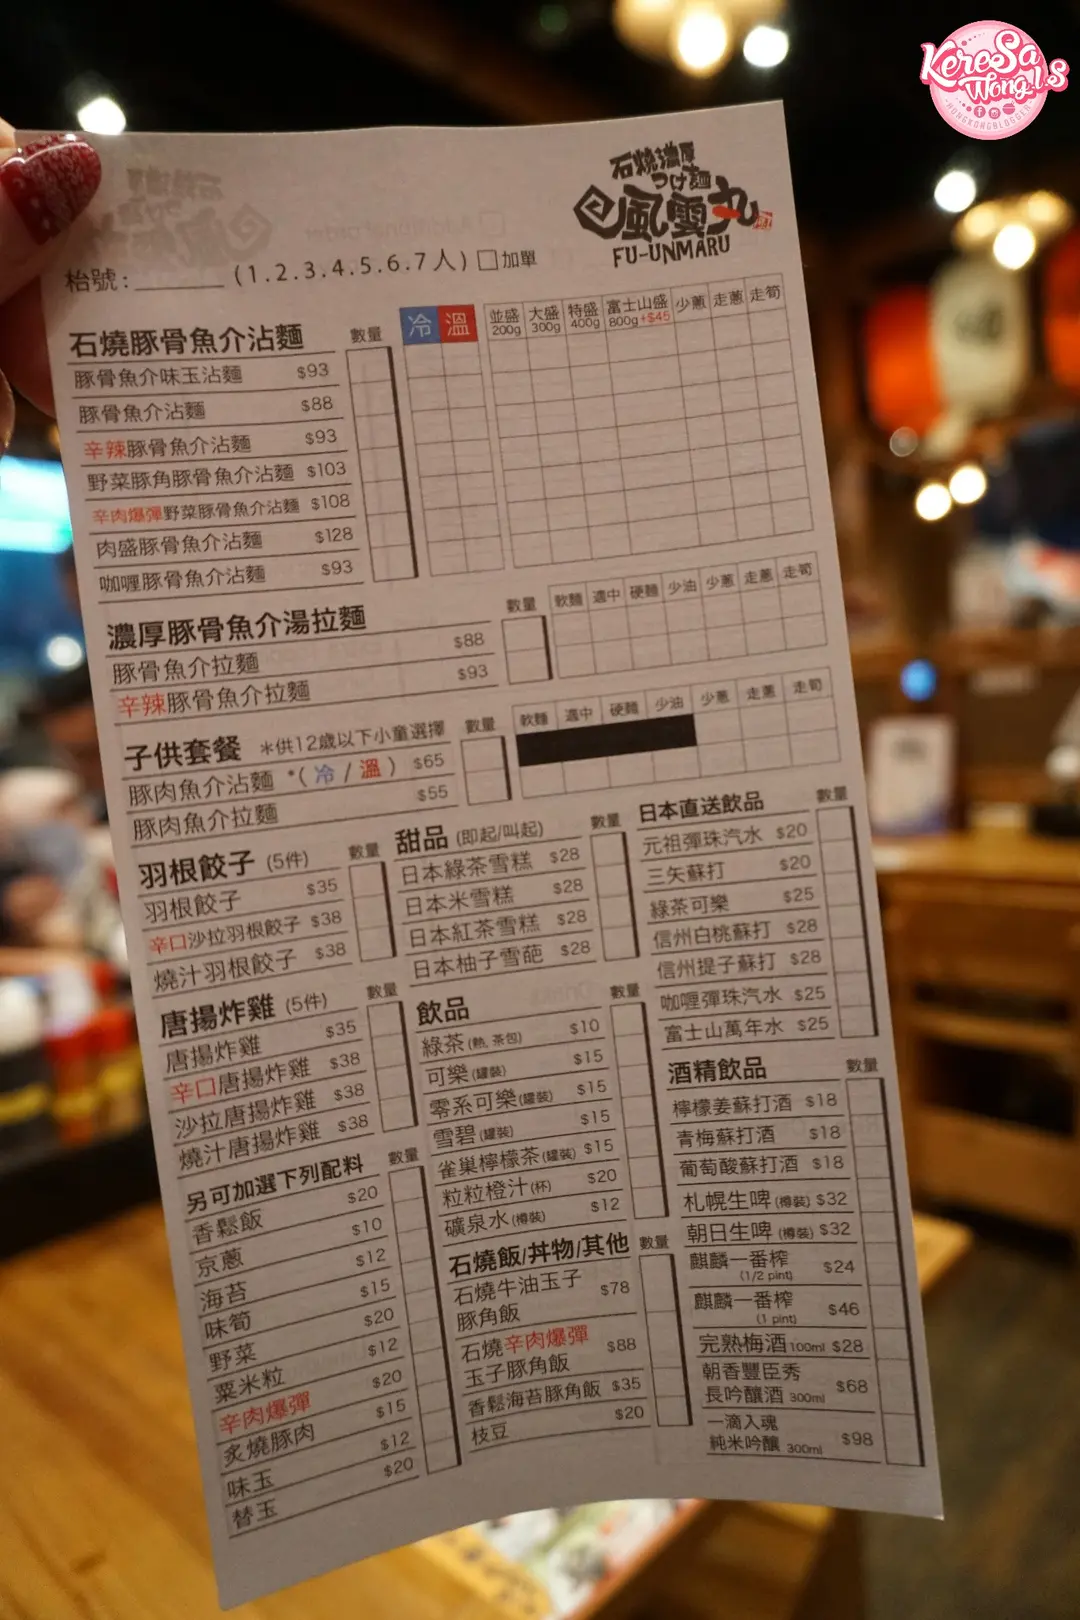 KereSa
Wong.l.S
HONGKONGBLOGGER
石燒濃厚
つけ麺
風雲丸
FU-UNMARU
枱號:______ (1.2.3.4.5.6.7人) □加單
石燒豚骨魚介沾麵 數量 冷 溫 並盛 200g 大盛 300g 特盛 400g 富士山盛 800g+$45 少蔥 走蔥 走筍
豚骨魚介味玉沾麵 $93
豚骨魚介沾麵 $88
辛辣豚骨魚介沾麵 $93
野菜豚角豚骨魚介沾麵 $103
辛肉爆彈野菜豚骨魚介沾麵 $108
肉盛豚骨魚介沾麵 $128
咖喱豚骨魚介沾麵 $93
濃厚豚骨魚介湯拉麵 數量 軟麵 適中 硬麵 少油 少蔥 走蔥 走筍
豚骨魚介拉麵 $88
辛辣豚骨魚介拉麵 $93
子供套餐 *供12歲以下小童選擇 數量 軟麵 適中 硬麵 少油 少蔥 走蔥 走筍
豚肉魚介沾麵 *(冷/溫) $65
豚肉魚介拉麵 $55
羽根餃子 (5件) 數量
羽根餃子 $35
辛口沙拉羽根餃子 $38
燒汁羽根餃子 $38
唐揚炸雞 (5件) 數量
唐揚炸雞 $35
辛口唐揚炸雞 $38
沙拉唐揚炸雞 $38
燒汁唐揚炸雞 $38
另可加選下列配料 數量
香鬆飯 $20
京蔥 $10
海苔 $12
味筍 $15
野菜 $20
粟米粒 $12
辛肉爆彈 $20
炙燒豚肉 $15
味玉 $12
替玉 $20
甜品 (即起/叫起) 數量
日本綠茶雪糕 $28
日本米雪糕 $28
日本紅茶雪糕 $28
日本柚子雪葩 $28
飲品 數量
綠茶(熱, 茶包) $10
可樂(罐裝) $15
零系可樂(罐裝) $15
雪碧(罐裝) $15
雀巢檸檬茶(罐裝) $15
粒粒橙汁(杯) $20
礦泉水(樽裝) $12
石燒飯/丼物/其他 數量
石燒牛油玉子
豚角飯 $78
石燒辛肉爆彈
玉子豚角飯 $88
香鬆海苔豚角飯 $35
枝豆 $20
日本直送飲品 數量
元祖彈珠汽水 $20
三矢蘇打 $20
綠茶可樂 $25
信州白桃蘇打 $28
信州提子蘇打 $28
咖喱彈珠汽水 $25
富士山萬年水 $25
酒精飲品 數量
檸檬姜蘇打酒 $18
青梅蘇打酒 $18
葡萄酸蘇打酒 $18
札幌生啤(樽裝) $32
朝日生啤(樽裝) $32
麒麟一番榨
(1/2 pint) $24
麒麟一番榨
(1 pint) $46
完熟梅酒 100ml $28
朝香豐臣秀
長吟釀酒 300ml $68
一滴入魂
純米吟釀 300ml $98